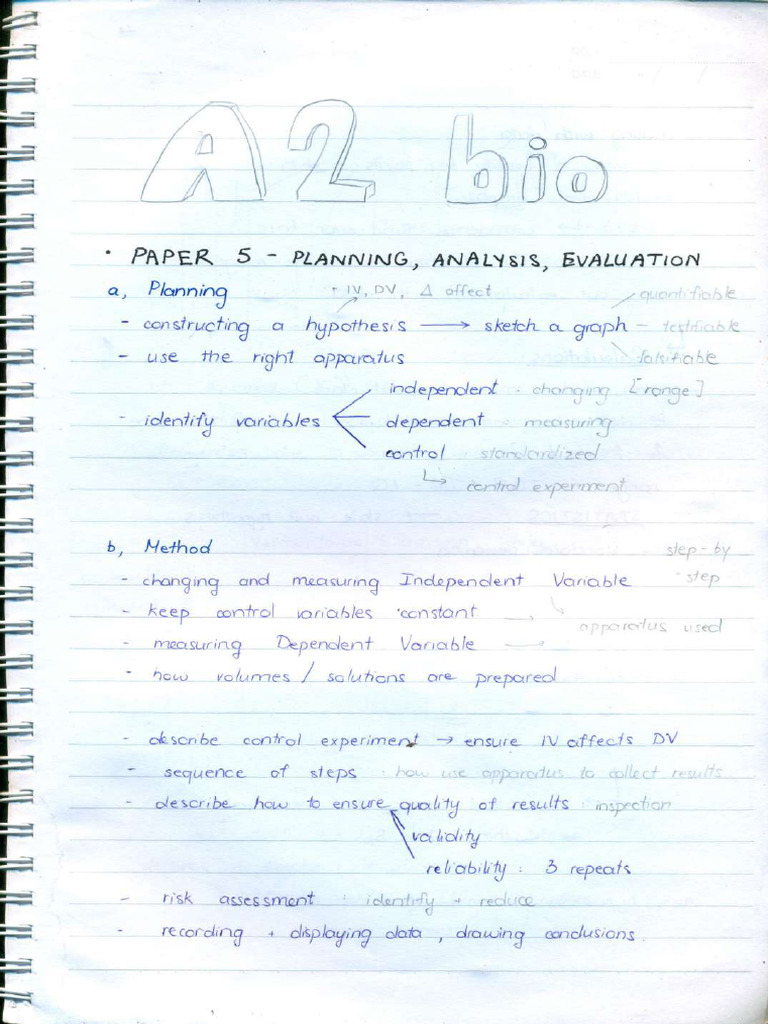 A2 bio
· PAPER 5 - PLANNING, ANALYSIS, EVALUATION
a, Planning
IV, DV, Δ affect
quantifiable
- constructing a hypothesis → sketch a graph - testifiable
- use the right apparatus
falsifiable
independent · changing [range]
- identify variables
dependent : measuring
control : standardized
↳ control experiment
b, Method
step-by-step
- changing and measuring Independent Variable
- keep control variables constant →
apparatus used
- measuring Dependent Variable →
- how volumes / solutions are prepared
- describe control experiment → ensure IV affects DV
- sequence of steps : how use apparatus to collect results
- describe how to ensure quality of results : inspection
validity
reliability : 3 repeats
- risk assessment : identify + reduce
- recording + displaying data , drawing conclusions.